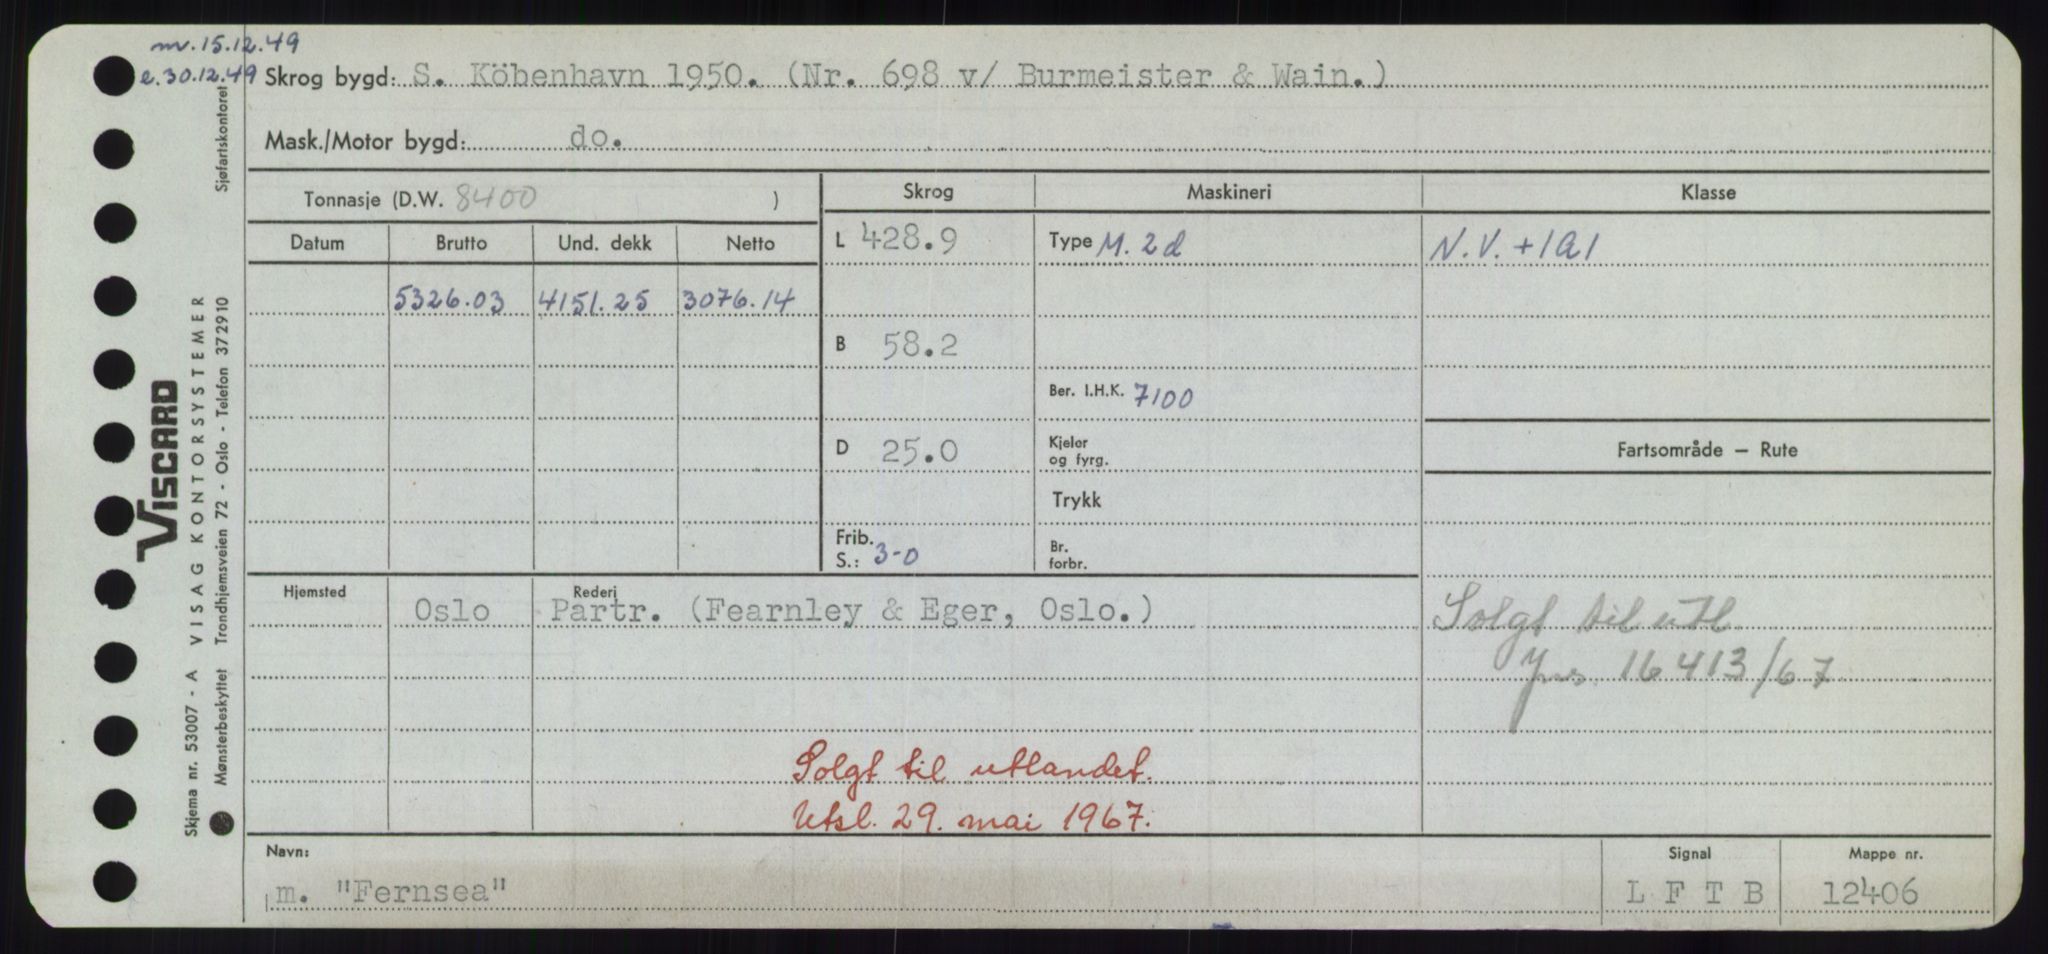 m. 15.12.49
e. 30.12.49
Skrog bygd: S. Köbenhavn 1950. (Nr. 698 v/ Burmeister & Wain.)
Mask./Motor bygd: do.
Tonnasje (D.W. 8400 )
Skrog
Maskineri
Klasse
Datum
Brutto
Und. dekk
Netto
L 428.9
Type M. 2 d
N.V. +1A1
5326.03
4151.25
3076.14
B 58.2
Ber. I.H.K. 7100
D 25.0
Kjeler
og fyrg.
Fartsområde – Rute
Trykk
Frib.
S.: 3-0
Br.
forbr.
Hjemsted
Rederi
Oslo
Partr. (Fearnley & Eger, Oslo.)
Solgt til utl.
16413/67
Solgt til utlandet.
Utsl. 29. mai 1967.
Navn:
m. "Fernsea"
Signal
L F T B
Mappe nr.
12406
VISCARD
Skjema nr. 53007 - A VISAG KONTORSYSTEMER
Mønsterbeskyttet Trondhjemsveien 72 - Oslo - Telefon 372910
Sjøfartskontoret